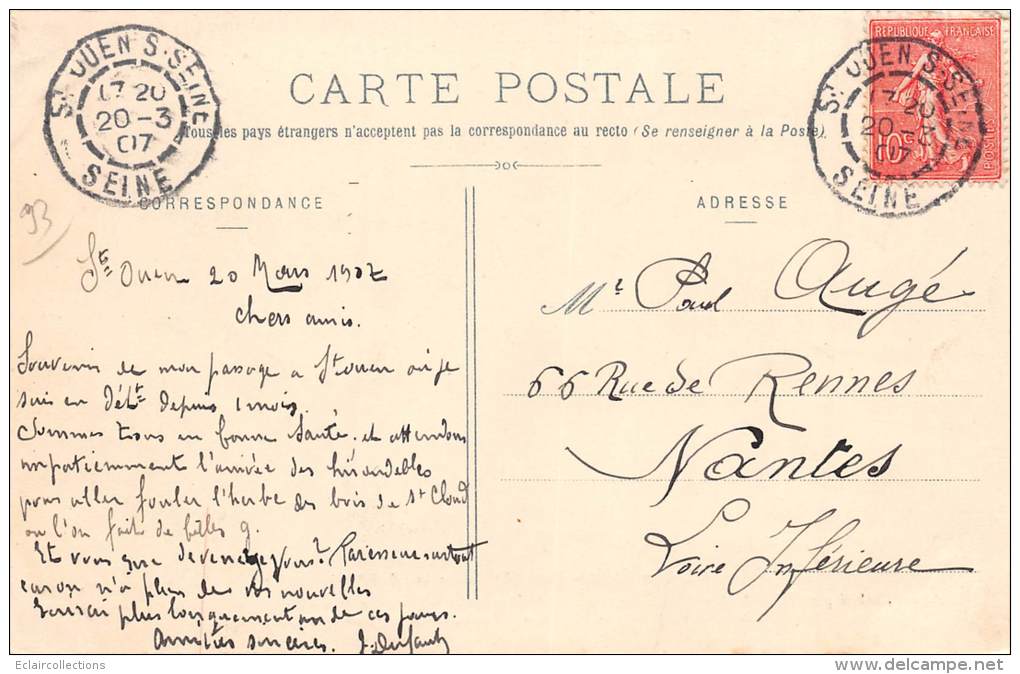 St OUEN S. SEINE
17 20
20 - 3
07
SEINE
RÉPUBLIQUE FRANÇAISE
10c
POSTES
St OUEN S. SEINE
17 20
20 - 3
07
SEINE
CARTE POSTALE
Tous les pays étrangers n'acceptent pas la correspondance au recto (Se renseigner à la Poste).
CORRESPONDANCE
ADRESSE
93
St Ouen 20 Mars 1907
Chers amis.
Souvenir de mon passage a St Ouen où je
suis en Dét.t depuis 1 mois.
Sommes tous en bonne santé. et attendons
impatiemment l'arrivée des hirondelles
pour aller fouler l'herbe des bois de St Cloud
ou l'on fait de belles g.
Et vous que devenez vous? Paresseux surtout
car on n'a plus de vos nouvelles
plus longuement un de ces jours.
Amitiés sincères. J.
Mr Paul Augé
66 Rue de Rennes
Nantes
Loire Inférieure
Eclaircollections
www.delcampe.net